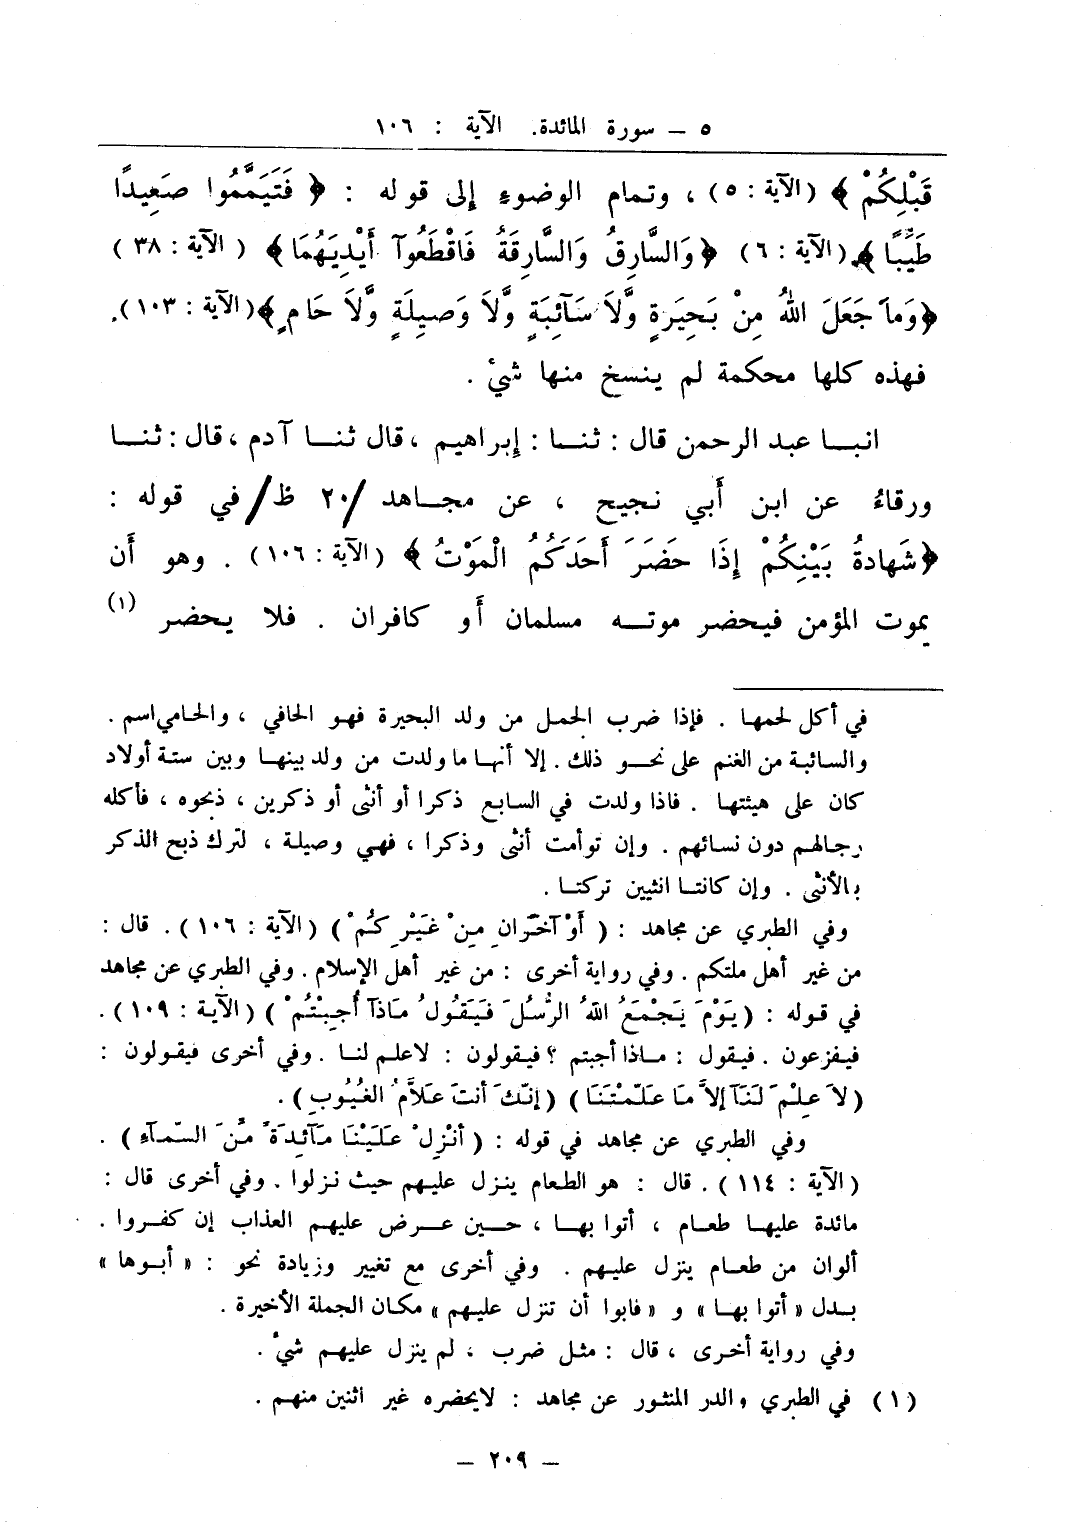 ٥ – سورة المائدة. الآية : ١٠٦
قَبْلِكُمْ ﴾ (الآية : ٥) ، وتمام الوضوء إلى قوله : ﴿ فَتَيَمَّمُوا صَعِيدًا
طَيِّبًا ﴾. (الآية : ٦) ﴿ وَالسَّارِقُ وَالسَّارِقَةُ فَاقْطَعُوآ أَيْدِيَهُمَا ﴾ (الآية : ٣٨)
﴿ وَمَا جَعَلَ اللهُ مِنْ بَحِيَرةٍ وَّلاَ سَآئِبَةٍ وَّلاَ وَصِيلَةٍ وَّلاَ حَامٍ ﴾ (الآية : ١٠٣).
فهذه كلها محكمة لم ينسخ منها شيْ .
انبا عبد الرحمن قال : ثنا : إبراهيم ، قال ثنا آدم ، قال : ثنا
ورقاءُ عن ابن أَبي نجيح ، عن مجاهد /٢٠ ظ/ في قوله :
﴿ شَهادةُ بَيْنِكُمْ إِذَا حَضَرَ أَحَدَكُمُ الْمَوْتُ ﴾ (الآية : ١٠٦) . وهو أَن
يموت المؤمن فيحضر موته مسلمان أَو كافران . فلا يحضر (١)
في أكل لحمها . فإذا ضرب الجمل من ولد البحيرة فهو الحافي ، والحامي اسم .
والسائبة من الغنم على نحو ذلك . إلا أنها ما ولدت من ولد بينها وبين ستة أولاد
كان على هيئتها . فاذا ولدت في السابع ذكرا أو أنثى أو ذكرين ، ذبحوه ، فأكله
رجالهم دون نسائهم . وإن توأمت أنثى وذكرا ، فهي وصيلة ، لترك ذبح الذكر
بالأنثى . وإن كانتا انثيين تركتا .
وفي الطبري عن مجاهد : ( أَوْ آخَرَانِ مِنْ غَيْرِ كُمْ ) (الآية : ١٠٦) . قال :
من غير أهل ملتكم . وفي رواية أخرى : من غير أهل الإسلام . وفي الطبري عن مجاهد
في قوله : ( يَوْمَ يَجْمَعُ اللهُ الرُّسُلَ فَيَقُولُ مَاذَآ أُجِبْتُمْ ) (الآية : ١٠٩) .
فيفزعون . فيقول : ماذا أجبتم ؟ فيقولون : لاعلم لنا . وفي أخرى فيقولون :
( لاَ عِلْمَ لَنَآ إِلاَّ مَا عَلَّمْتَنَا ) ( إِنَّكَ أَنتَ عَلاَّمُ الغُيُوبِ ) .
وفي الطبري عن مجاهد في قوله : ( أَنْزِلْ عَلَيْنَا مَآئِدَةً مِّنَ السَّمَآءِ ) .
(الآية : ١١٤) . قال : هو الطعام ينزل عليهم حيث نزلوا . وفي أخرى قال :
مائدة عليها طعام ، أتوا بها ، حين عرض عليهم العذاب إن كفروا .
ألوان من طعام ينزل عليهم . وفي أخرى مع تغيير وزيادة نحو : « أبوها »
بدل « أتوا بها » و « فابوا أن تنزل عليهم » مكان الجملة الأخيرة .
وفي رواية أخرى ، قال : مثل ضرب ، لم ينزل عليهم شيْ .
(١) في الطبري والدر المنثور عن مجاهد : لايحضره غير اثنين منهم .
– ٢٠٩ –